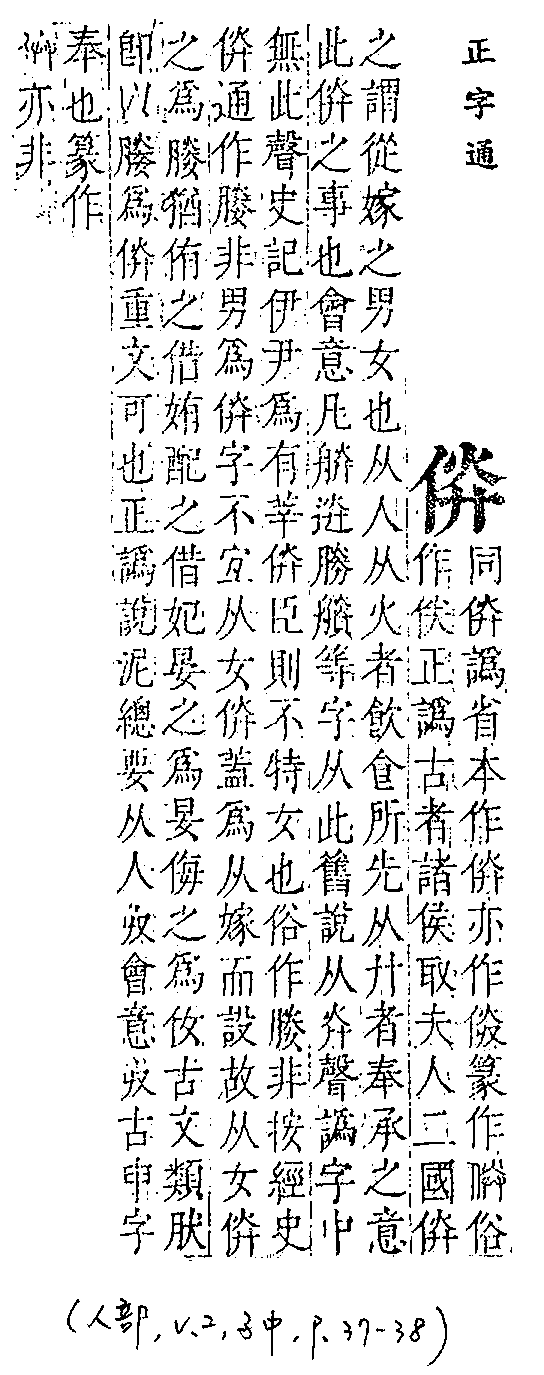 正字通
㑞
同㑞譌省本作㑞亦作㑞篆作㑞俗
作佚正譌古者諸侯取夫人二國㑞
之謂從嫁之男女也从人从火者飲食所先从廾者奉承之意
此㑞之事也會意凡䑞送勝艤等字从此舊說从灷聲譌字中
無此聲史記伊尹爲有莘㑞臣則不特女也俗作媵非按經史
㑞通作媵非男爲㑞字不宜从女㑞蓋爲从嫁而設故从女㑞
之爲媵猶侑之借姷配之借妃晏之爲㫃侮之爲㚢古文類肰
卽以媵爲㑞重文可也正譌說泥總要从人㕞會意㕞古申字
奉也篆作
亦非
(人部, v.2, 子中, p.37-38)